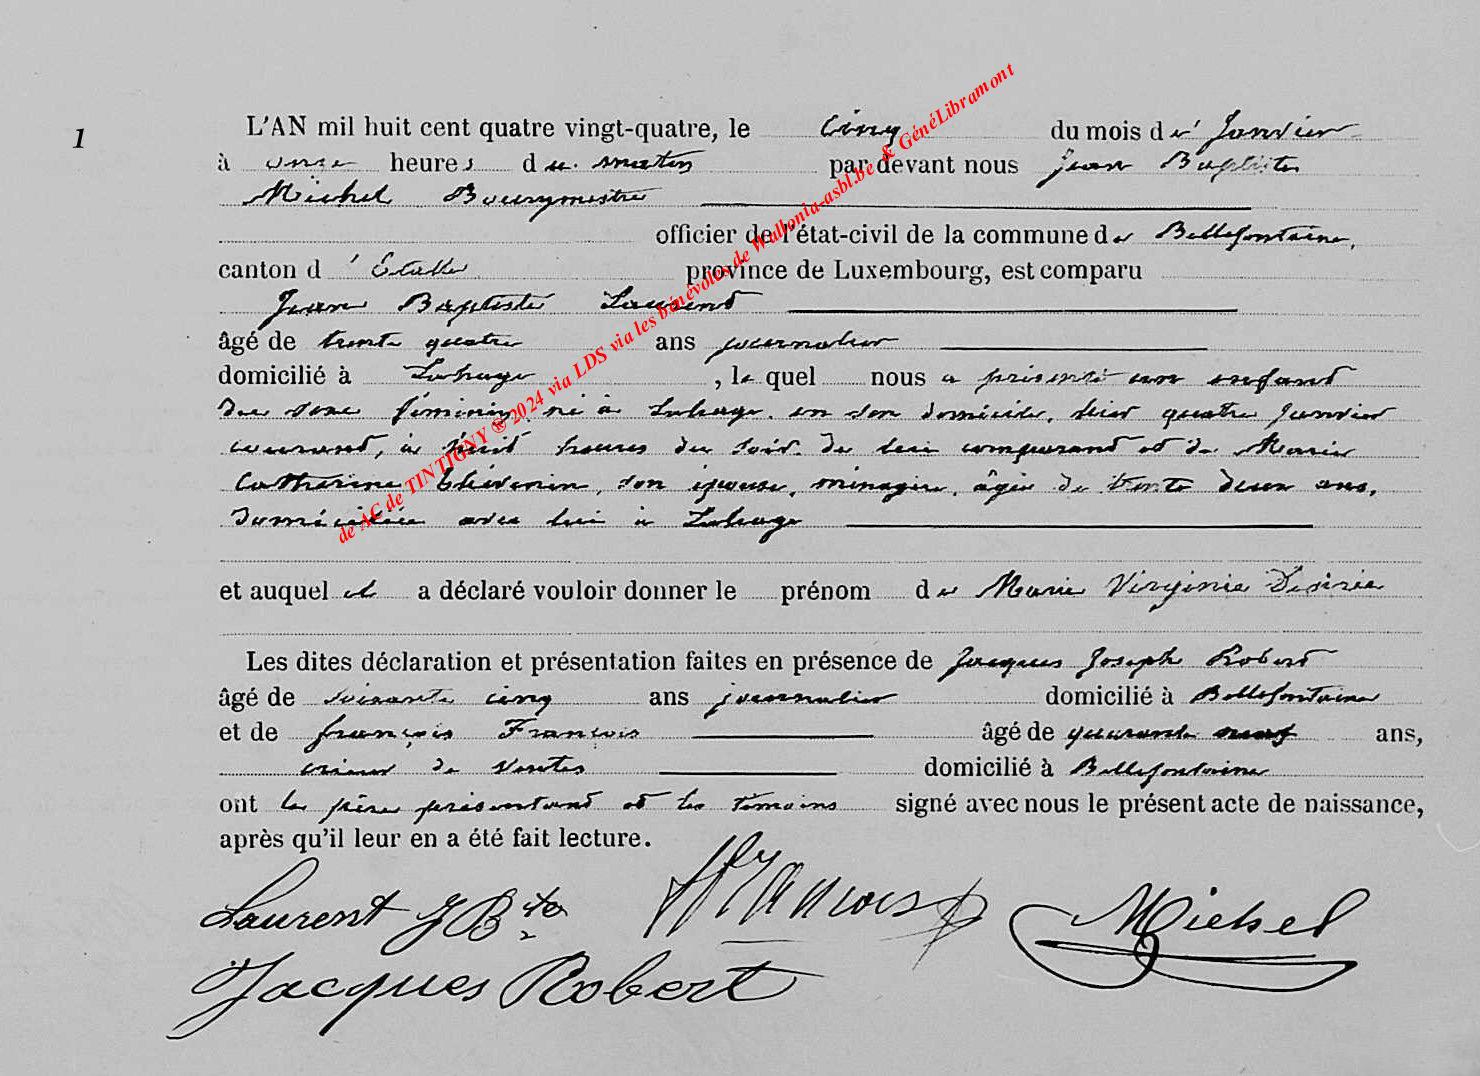 1
L'AN mil huit cent quatre vingt-quatre, le cinq du mois de Janvier
à onze heures du matin par devant nous Jean Baptiste
Michel Bourgmestre
officier de l'état-civil de la commune de Bellefontaine,
canton d'Étalle province de Luxembourg, est comparu
Jean Baptiste Laurent
âgé de trente quatre ans journalier
domicilié à Lahage, le quel nous a présenté un enfant
du sexe féminin, né à Lahage, en son domicile, hier quatre Janvier
courant, à huit heures du soir. de lui comparant et de Marie
Catherine Thévenin, son épouse, ménagère, âgée de trente deux ans,
domiciliée avec lui à Lahage
et auquel il a déclaré vouloir donner le prénom de Marie Virginie Désirée
Les dites déclaration et présentation faites en présence de Jacques Joseph Robert
âgé de soixante cinq ans journalier domicilié à Bellefontaine
et de françois François âgé de quarante neuf ans,
crieur de ventes domicilié à Bellefontaine
ont le père présentant et les témoins signé avec nous le présent acte de naissance,
après qu'il leur en a été fait lecture.
Laurent J Bte François Michel
Jacques Robert
de AC de TINTIGNY ® 2024 via LDS via les bénévoles de Wallonia-asbl.be & GénéLibramont